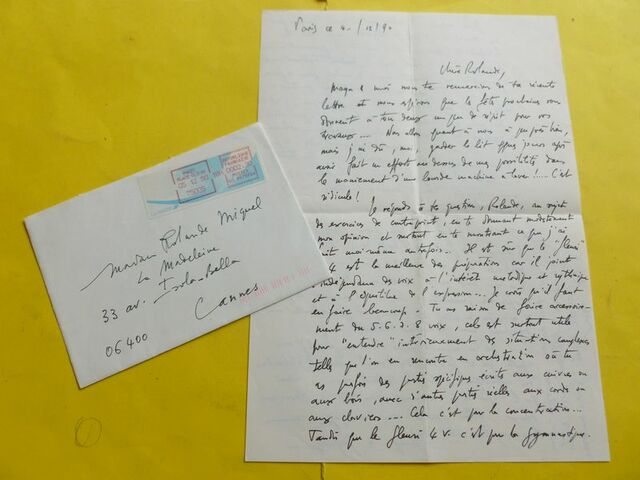 Paris ce 4-/12/90
Chère Rolande,
Maga & moi nous te remercions de ta récente
lettre et nous espérons que les fêtes prochaines vous
donnent à tous deux un peu de répit pour vos
travaux.... Nous allons quant à nous à peu près bien,
mais j'ai dû, moi, garder le lit qques jours après
avoir fait un effort au dessus de mes possibilités dans
le maniement d'une lourde machine à laver!.... C'est
ridicule!
Je réponds à ta question, Rolande, au sujet
des exercices de contrepoint, en te donnant modestement
mon opinion et surtout en te montrant ce que j'ai
fait moi-même autrefois... Il est sûr que le "fleuri"
à 4 est la meilleure des préparations car il joint
l'indépendance des voix à l'intérêt mélodique et rythmique
et à l'équilibre de l'expression... Je crois qu'il faut
en faire beaucoup. Tu as raison de faire accessoire-
ment du 5.6.7.8 voix, cela est surtout utile
pour "entendre" intérieurement des situations complexes
telles que l'on en rencontre en orchestration où tu
as parfois des parties spécifiques écrites aux cuivres ou
aux bois, avec d'autres parties réelles aux cordes ou
aux claviers.... Cela c'est pour la concentration...
Tandis que le fleuri 4 v. c'est pour la gymnastique.
RÉPUBLIQUE
FRANÇAISE
05 12 90
75005
Madame Rolande Miquel
La Madeleine
33 av. Isola-Bella
Cannes
06400